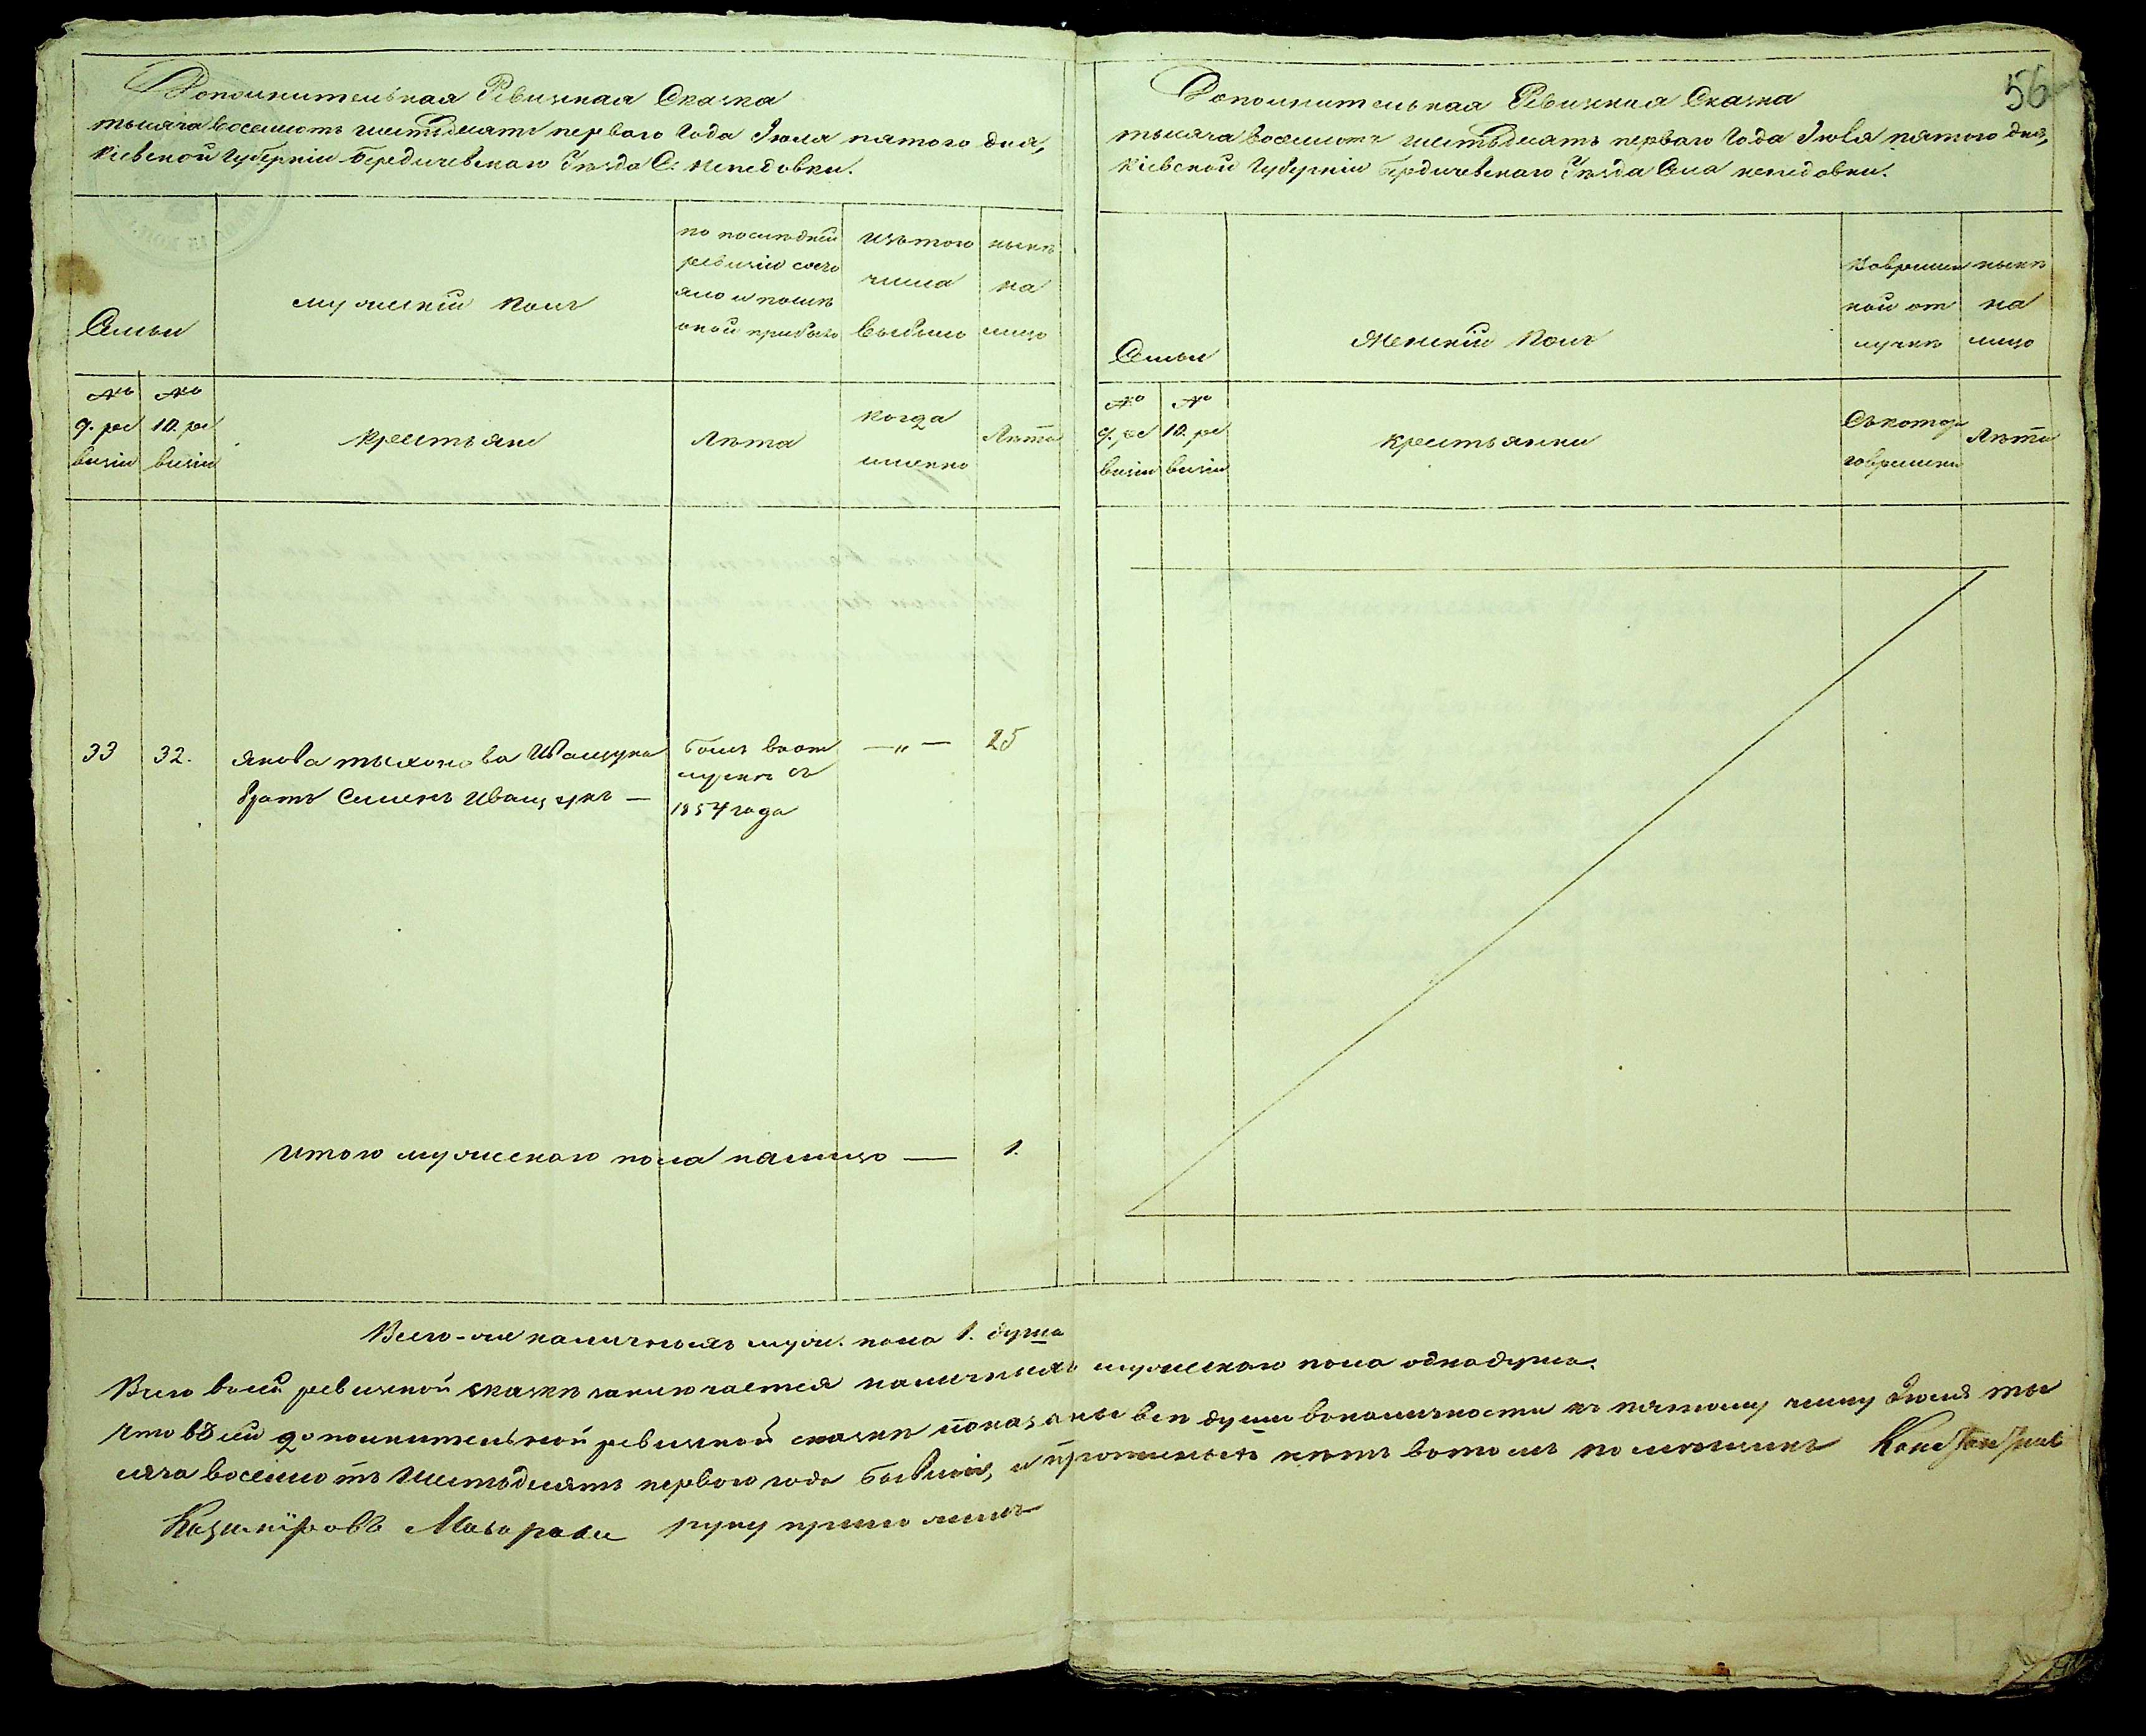 Дополнительная Ревизкая Сказка
тысяча восемсотъ шестьдесятъ перваго Года Іюля пятого дня,
Кіевской Губерніи Бердичевскаго Уѣзда С. Непедовки.
Семьи
мужескій полъ
по послѣдней
ревизіи состо
яло и послѣ
оной прибыло
изъ того
числа
выбыло
нынѣ
на
лицо
№
9. ре
визіи
№
10. ре
визіи
крестьяне
Лѣта
когда
именно
Лѣта
33 32. Якова тыхонова Иващука былъ въ от — „ — 25
братъ Семенъ Иващукъ — лучкѣ съ
1854 года
итого мужескаго пола налицо — 1.
56
Дополнительная Ревизкая Сказка
тысяча восемсотъ шестьдесятъ перваго Года Іюля пятого дня,
Кіевской Губерніи Бердичевскаго Уѣзда Села непедовки.
Семьи
Женскій Полъ
Во времен
ной от
лучкѣ
нынѣ
на
лицо
№
9. ре
визіи
№
10. ре
визіи
крестьянки
Съ котор
го времени
Лѣта
Всего-же наличныхъ муж. пола 1. душа
Всего в сей ревизкой сказкѣ заключается наличныхъ мужескаго пола одна душа.
Что въ сей дополнительной ревизкой сказкѣ показаны всѣ души в наличности къ пятому числу Іюля ты
сяча восемсотъ Шестьдесятъ перваго года бывшія, и прописныхъ нѣтъ в томъ помѣщикъ
Казимировъ руку приложилъ